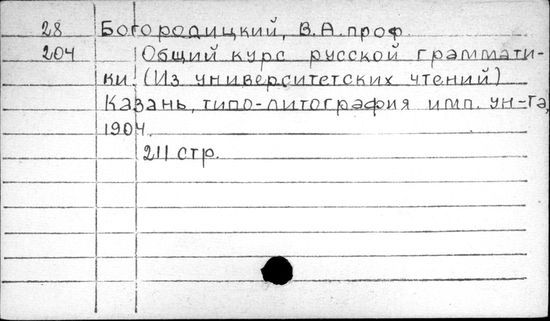 28 Богородицкий, В.А. проф.
204 Общий курс русской граммати-
ки. (Из университетских чтений)
Казань, типо-литография имп. ун-та,
1904.
211 стр.